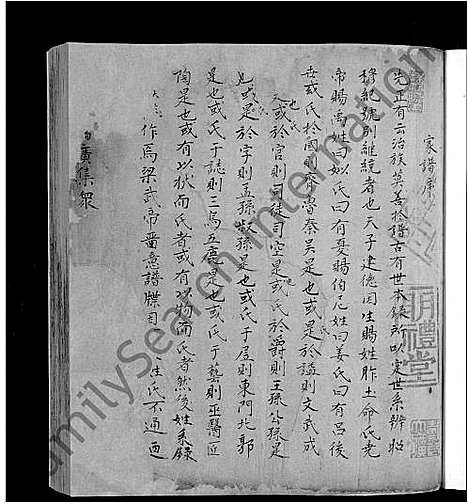 家譜序
先正有云治族莫善於譜古有世本錄所以定世系辨昭
穆紀號別継統者也天子建德因生賜姓胙土命氏堯
帝賜禹姓曰姒氏曰有夏賜伯尼姓曰姜氏曰有呂後
世或氏於國則齊魯秦吳是也或氏於謚則文武成
也或氏於官則司徒司空是也或氏於爵則王孫公孫是
也或氏於字則孟孫叔孫是也或氏于居則東門北郭
是也或氏于誌則三烏五鹿是也或氏于藝則巫醫匠
陶是也或有以狱而氏者或有以物而氏者然後姓系錄
作焉梁武帝啬意譜牒司 姓氏不通西
廣集眾
明禮堂
FamilySearch International